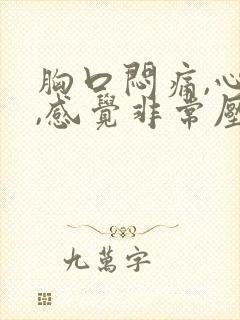 胸口悶痛,心
,感覺非常壓
九萬字